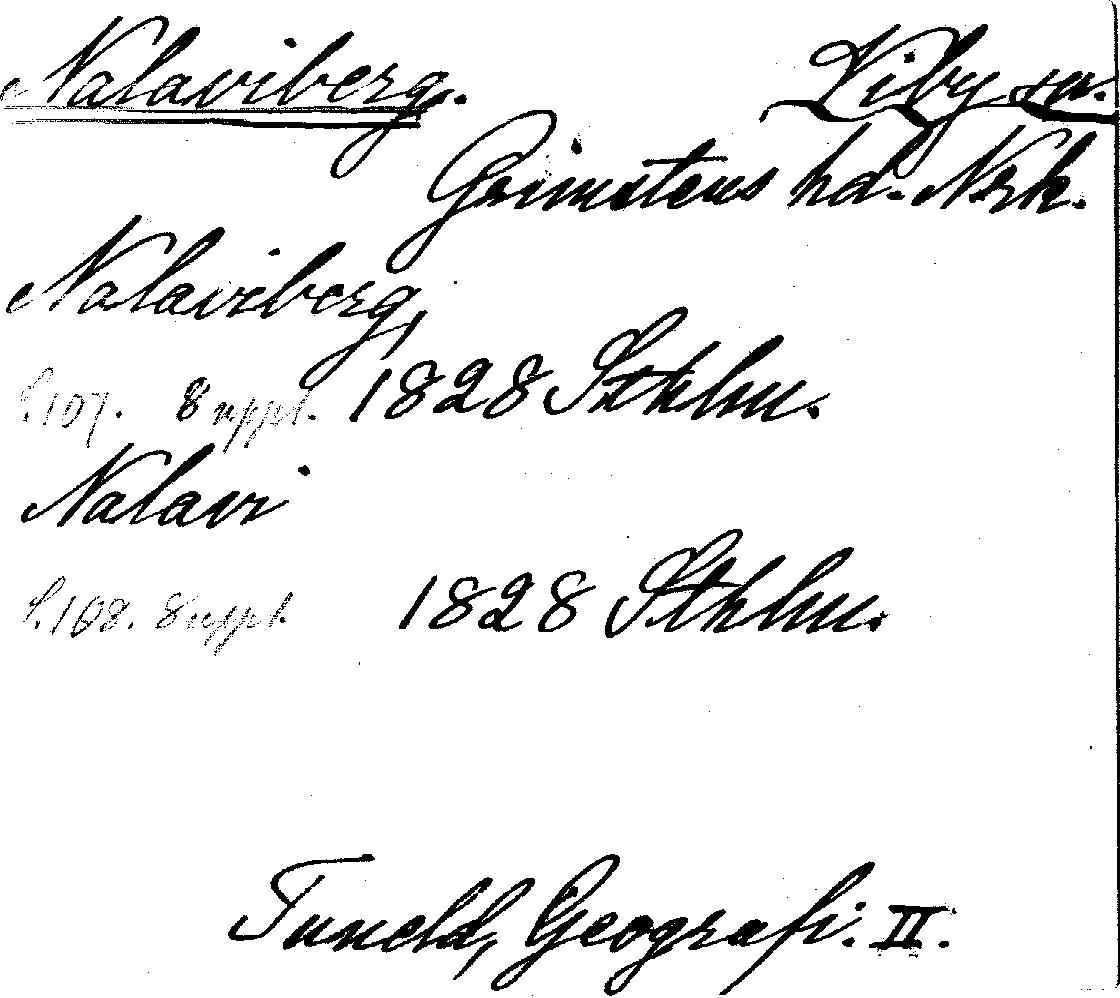 Nalaviberg. Viby sn.
Grimstens hd. Nrk.
Nalaviberg,
S.107. Suppl. 1828 Sthlm.
Nalavi
S.108. Suppl. 1828 Sthlm.
Tuneld, Geografi. II.